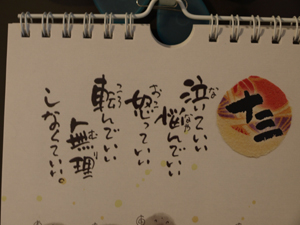 十三
泣いていい
悩んでいい
怒っていい
転んでいい
無理
しなくていい。